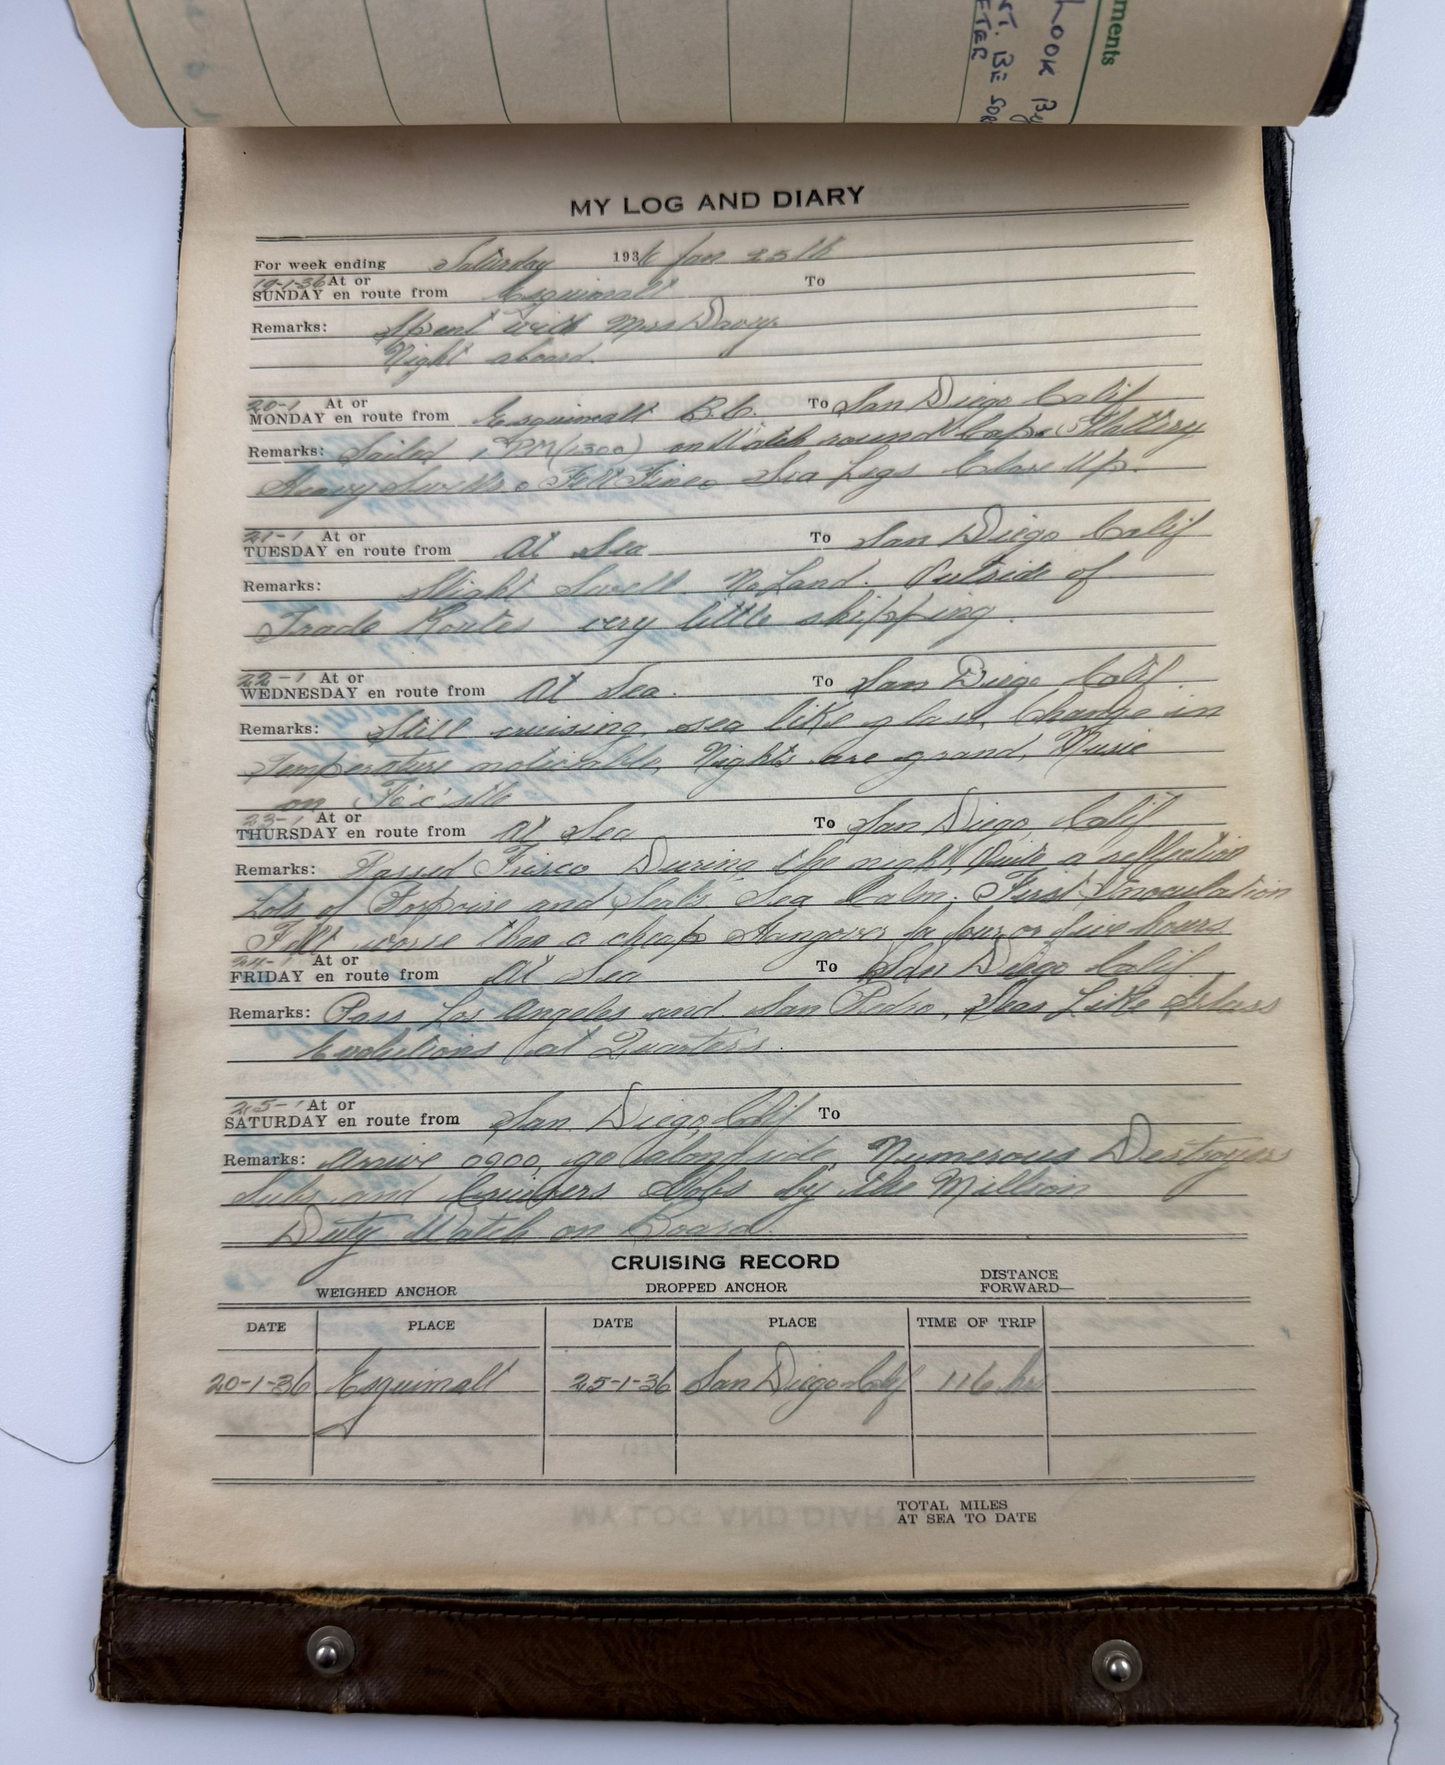 ments
LOOK BY
NT. BE SOR
ETER
MY LOG AND DIARY
For week ending Saturday 1936 Jan 25th
19-1-36 At or
SUNDAY en route from Esquimalt To
Remarks: Spent with Mrs Davy.
Night aboard.
20-1 At or
MONDAY en route from Esquimalt B.C. To San Diego Calif
Remarks: Sailed 1 PM (1300) on Watch round Cape Flattery
Heavy Swells. Felt Fine. Sea Legs Close Up.
21-1 At or
TUESDAY en route from At Sea To San Diego Calif
Remarks: Slight Swell. No Land. Outside of
Trade Routes very little shipping.
22-1 At or
WEDNESDAY en route from At Sea. To San Diego Calif.
Remarks: Still cruising, sea like glass, Change in
Temperature noticable, Nights are grand, Music
on Fo'c'sle
23-1 At or
THURSDAY en route from At Sea To San Diego, Calif
Remarks: Passed Frisco During the night, Quite a reflection
Lots of Porpoise and Seals Sea Calm. First Innoculation
Felt worse than a cheap Hangover for four or five hours
24-1 At or
FRIDAY en route from At Sea To San Diego Calif.
Remarks: Pass Los Angeles and San Pedro, Seas Like Glass
Evolutions at Quarters.
25-1 At or
SATURDAY en route from San Diego, Calif To
Remarks: Arrive 0900, go alongside Numerous Destroyers
Subs and Cruisers Gobs by the Million
Duty Watch on Board.
CRUISING RECORD
WEIGHED ANCHOR DROPPED ANCHOR DISTANCE
FORWARD—
DATE PLACE DATE PLACE TIME OF TRIP
20-1-36 Esquimalt 25-1-36 San Diego Calif 116 hrs
TOTAL MILES
AT SEA TO DATE